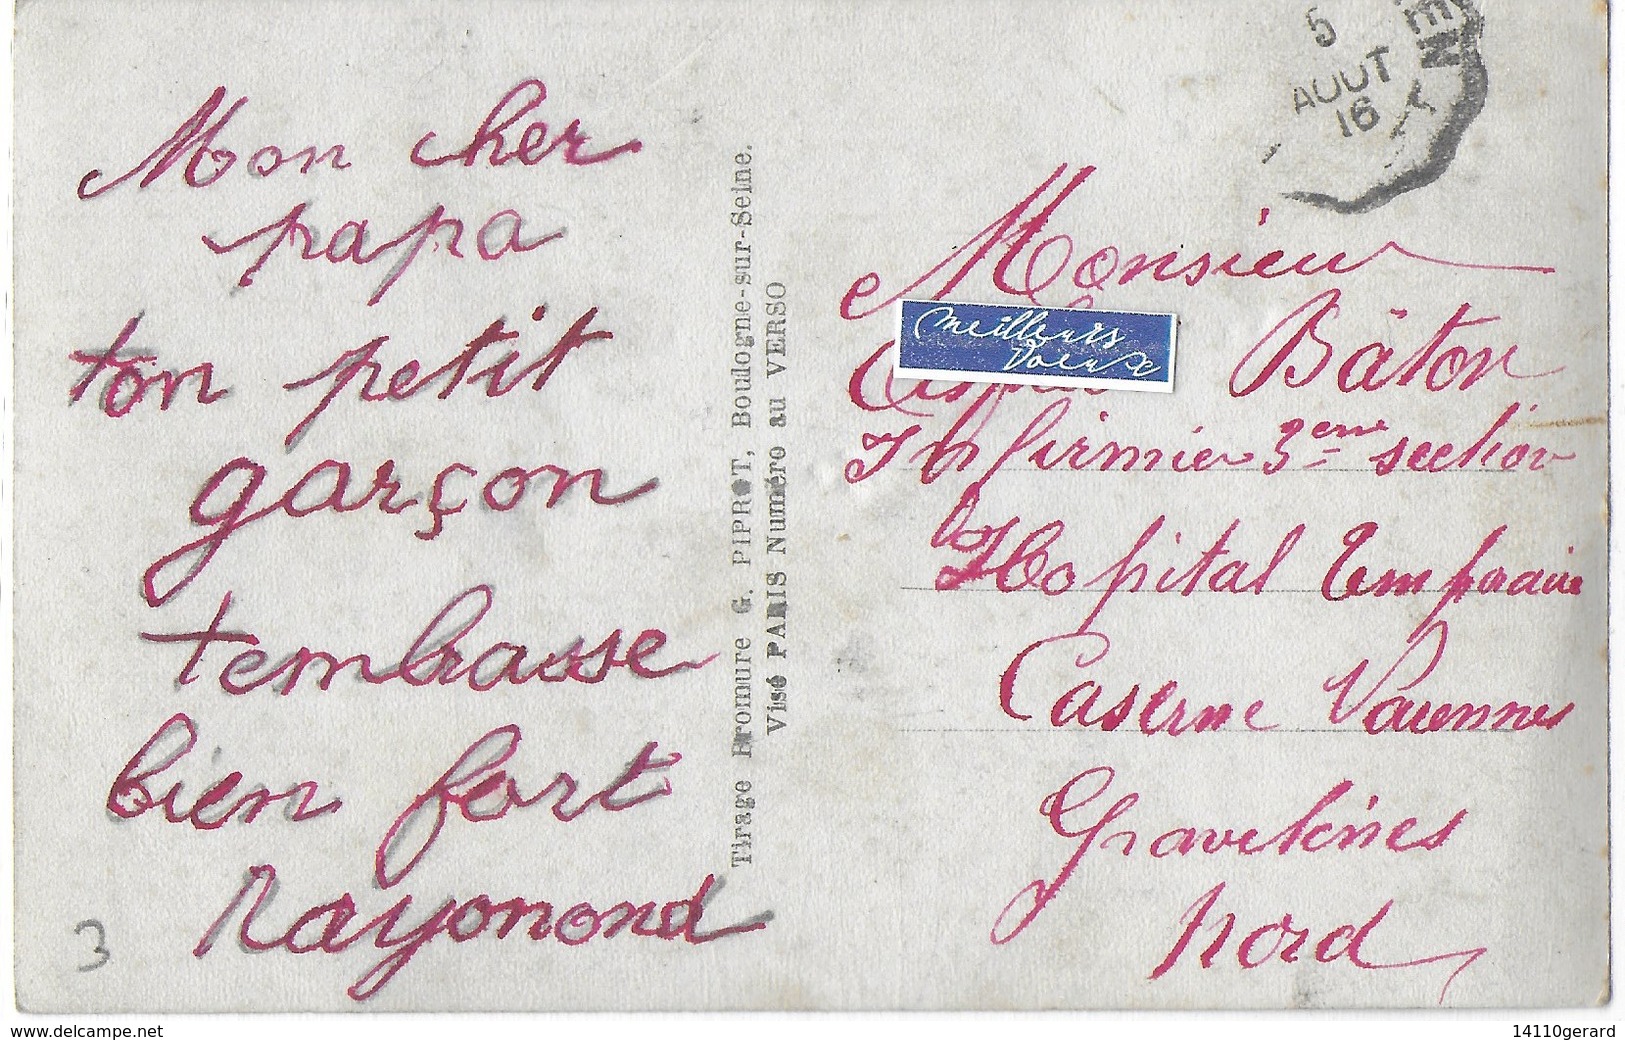 Mon cher
papa
ton petit
garçon
t embrasse
bien fort
Rayonond
3
Tirage Bromure G. PIPROT, Boulogne-sur-Seine.
Visé PARIS Numéro au VERSO
5
AOUT
16
Monsieur
Bâton
meilleurs
Voeux
Infirmier 3eme section
Hopital Temporaire
Caserne Varennes
Gravelines
Nord
www.delcampe.net
14110gerard